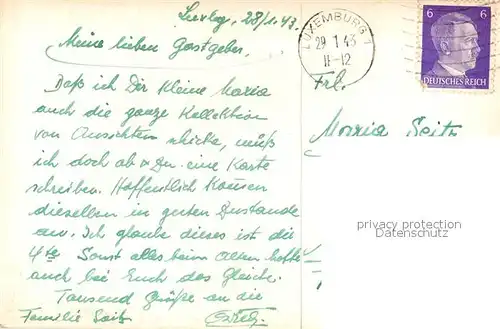 Luxbg, 28/1.43.
Meine lieben Gastgeber,
Daß ich Dir kleine Maria
auch die ganze Kollektion
von Aussichten schicke, muß
ich doch ab & zu eine Karte
schreiben. Hoffentlich kommen
dieselben in gutem Zustande
an. Ich glaube dieses ist die
4te Sonst alles beim Alten hoffe
auch bei Euch das Gleiche.
Tausend Grüße an die
Familie Seitz
LUXEMBURG 1
29 1 43
11-12
6 6
DEUTSCHES REICH
Frl.
Maria Seitz
privacy protection
Datenschutz